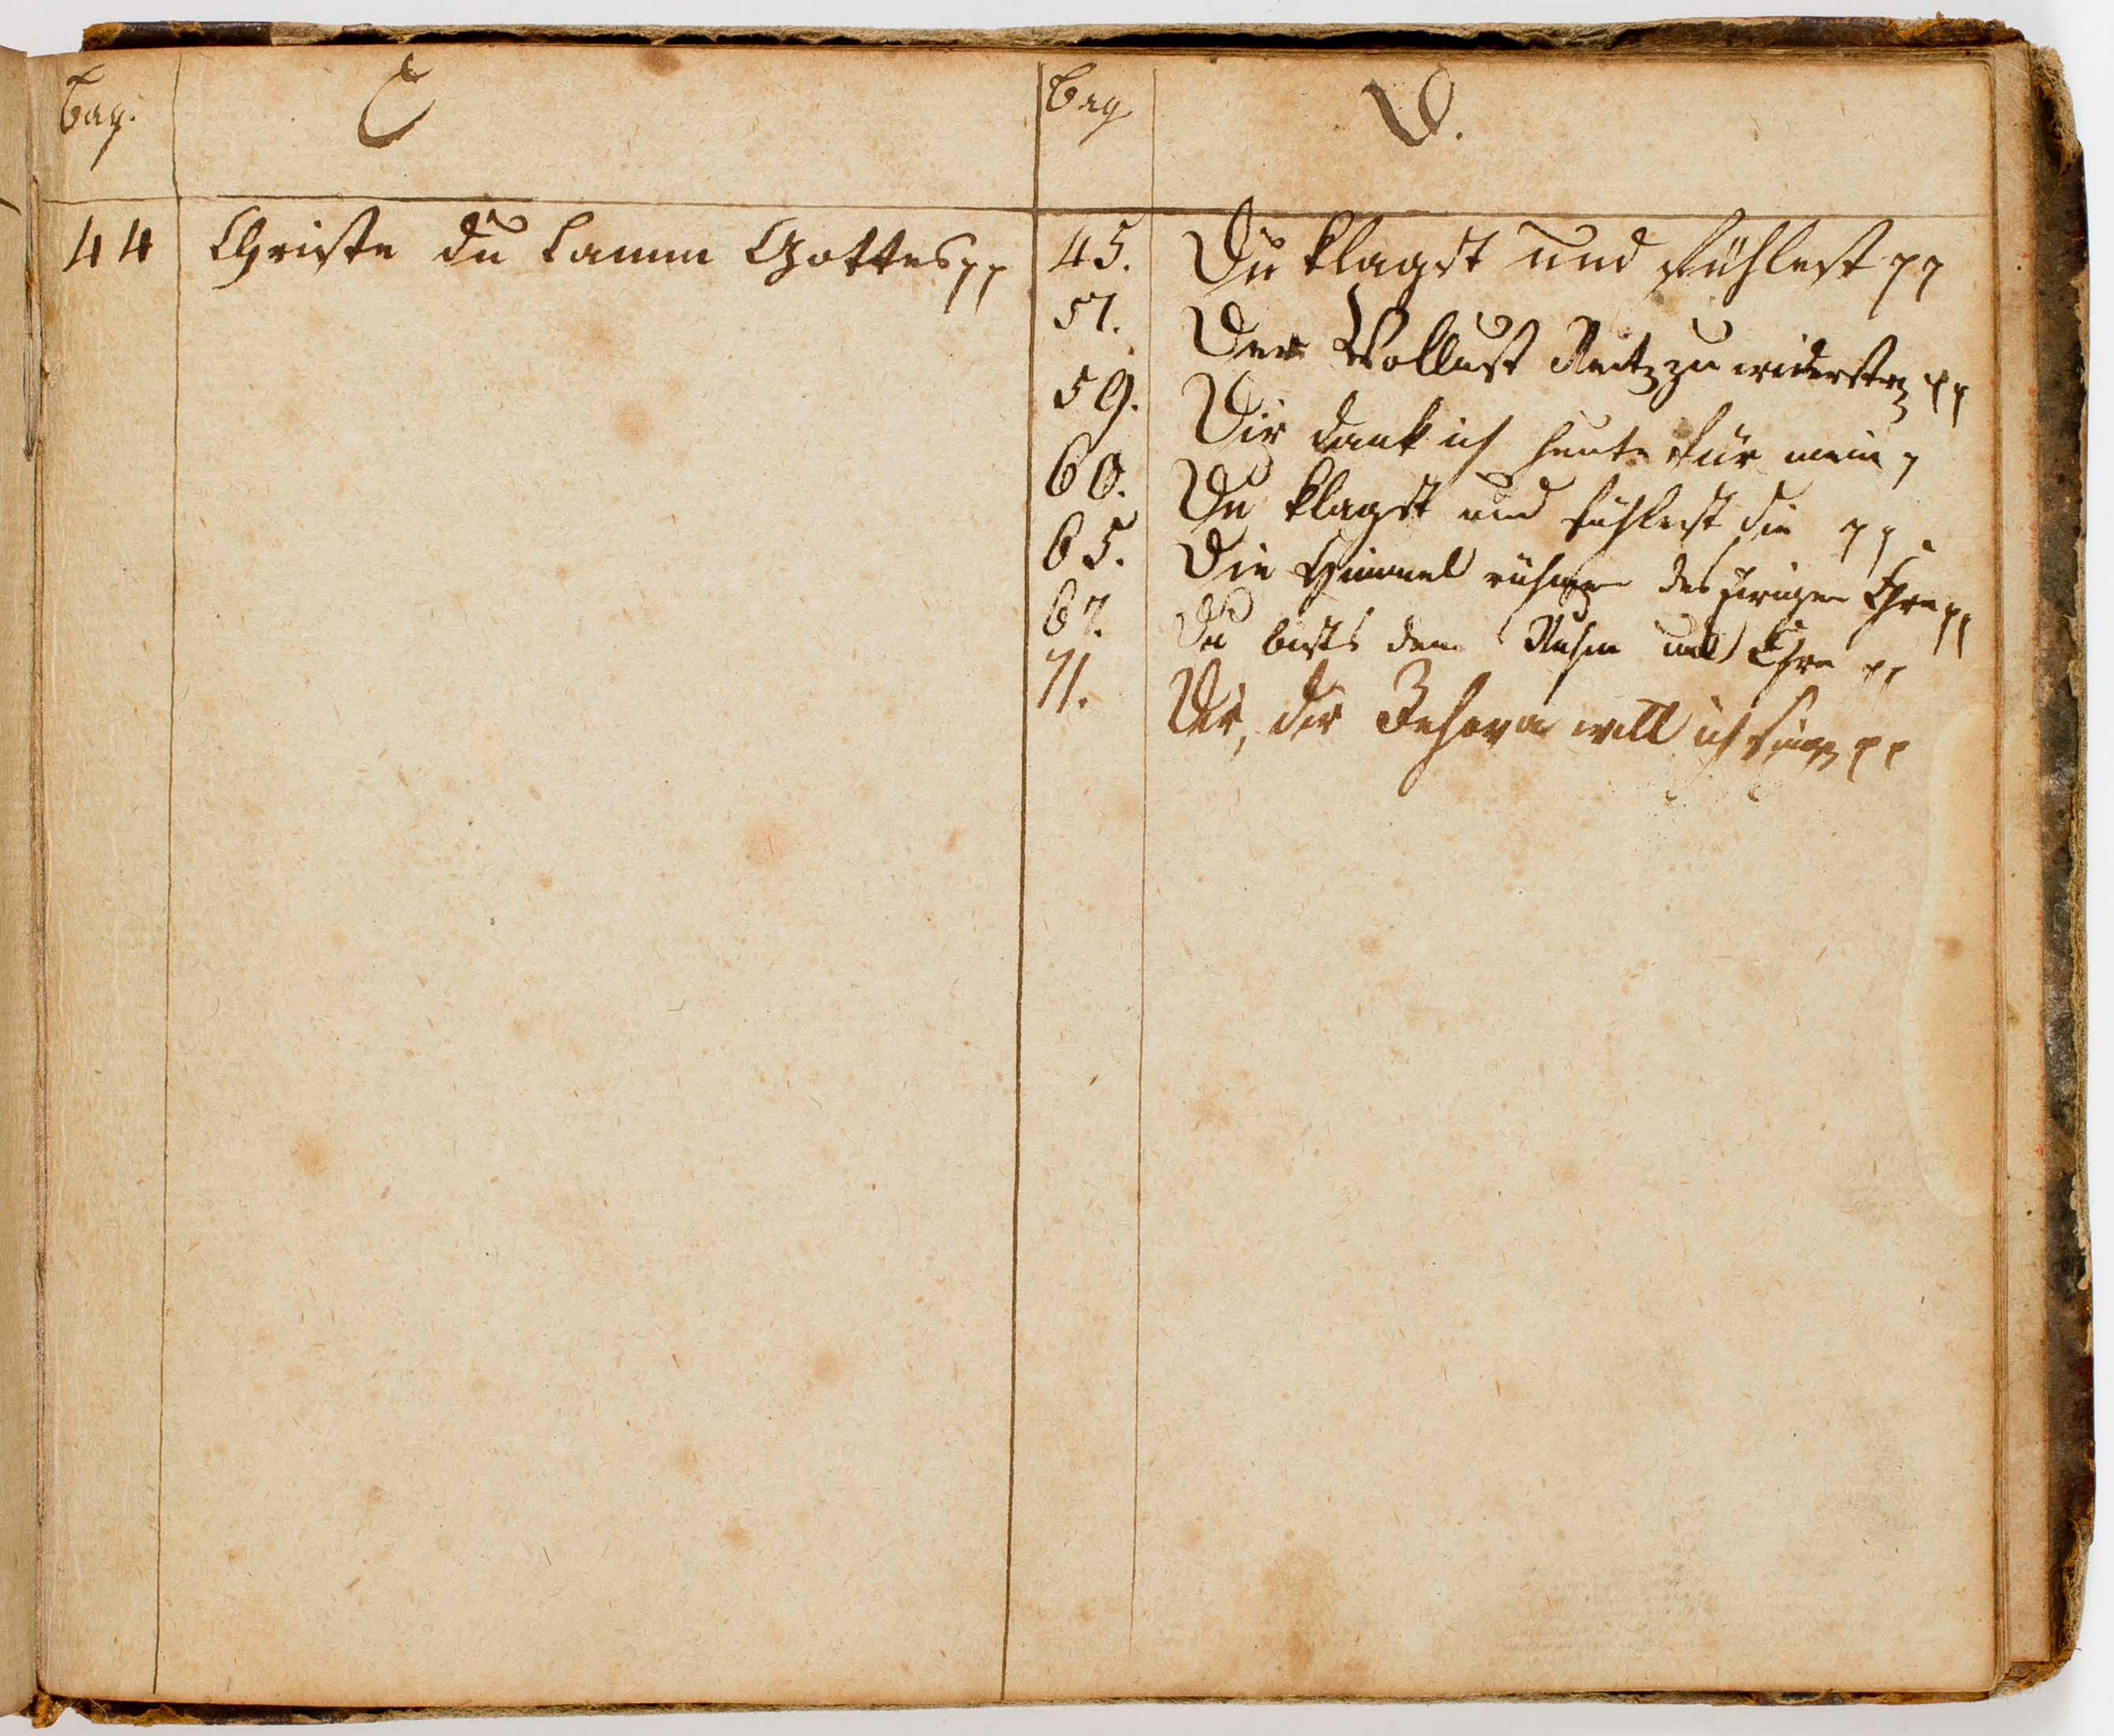 Pag. C
44 Christe du Lamm Gottes pp
Pag. D.
45. Du klagst und fühlest pp
57. Der Wollust Reitz zu widerstr pp
59. Dir dank ich heute für mein p
60. Du klagst und fühlest die pp
65. Die Himmel rühmen des Ehre pp
67. Du bists dem Ruhm und Ehre pp
71. Dir, dir Jehova will ich singen pp